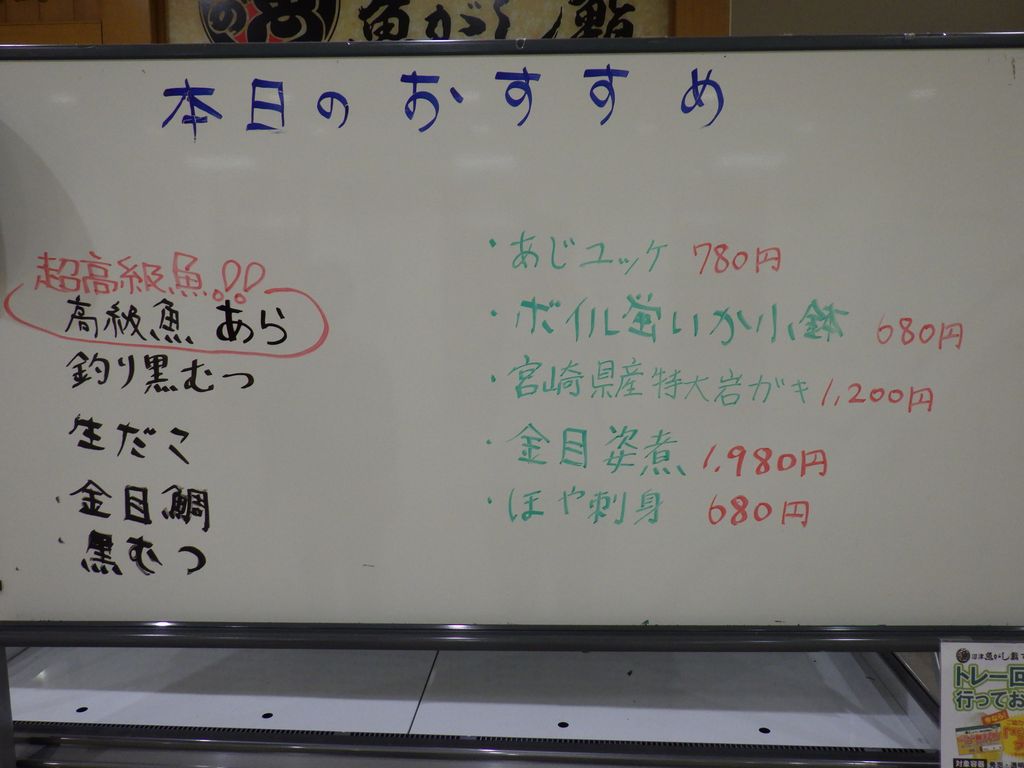 魚がし鮨
本日のおすすめ
超高級魚!!
高級魚 あら
釣り黒むつ
生だこ
・金目鯛
・黒むつ
・あじユッケ 780円
・ボイル蛍いか小鉢 680円
・宮崎県産特大岩ガキ 1,200円
・金目姿煮 1,980円
・ほや刺身 680円
沼津魚がし鮨
トレー回
行ってお
対象容器